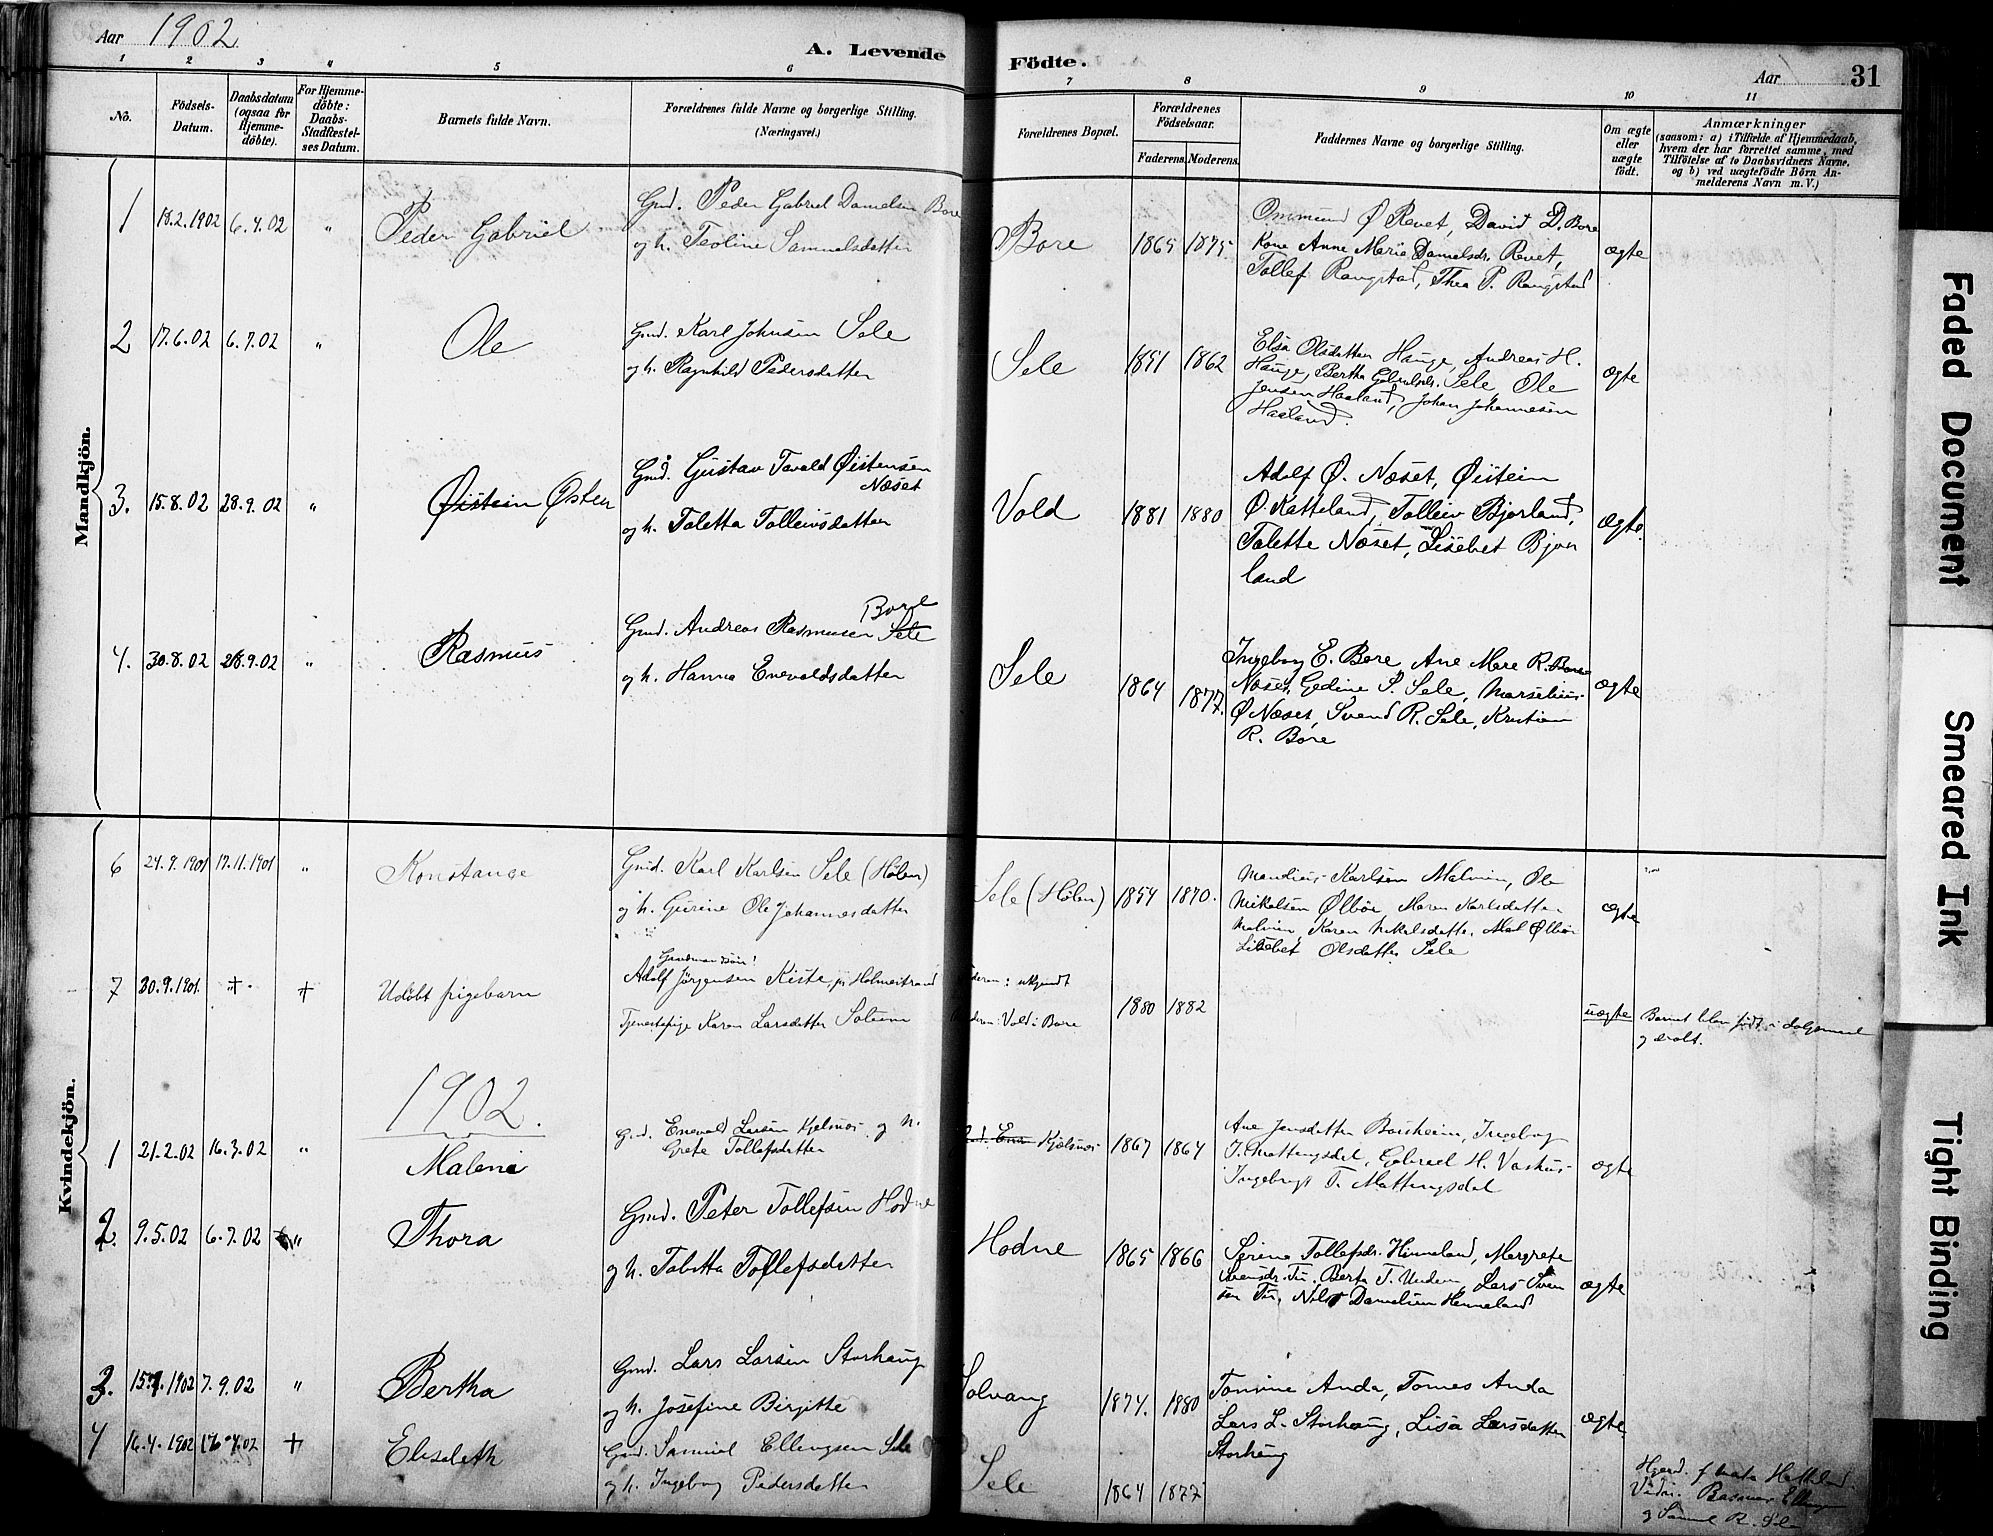 Aar 1902
A. Levende
Födte.
Aar
31
1 2 3 4 5 6 7 8 9 10 11
No.
Födsels-
Datum.
Daabsdatum
(ogsaa for
Hjemme-
döbte).
For Hjemme-
döbte:
Daabs-
Stadfæstel-
ses Datum.
Barnets fulde Navn.
Forældrenes fulde Navne og borgerlige Stilling.
(Næringsvei.)
Forældrenes Bopæl.
Forældrenes
Födselsaar.
Faderens. Moderens.
Faddernes Navne og borgerlige Stilling.
Om ægte
eller
uægte
födt.
Anmærkninger
(saasom: a) i Tilfælde af Hjemmedaab,
hvem der har forrettet samme, med
Tilföielse af to Daabsvidners Navne,
og b) ved uægtefödte Börn An-
melderens Navn m. V.)
Mandkjön.
1 18.2.1902 6.4.02 " Peder Gabriel
Gmd. Peder Gabriel Danielsen Bore
og h. Teoline Samuelsdatter
Bore 1865 1875
Ommund Ø Revet, David D. Bore
Kone Anne Marie Danielsdr. Revet,
Tollef Rangstad, Thea P. Rangstad
ægte
2 17.6.02 6.7.02 " Ole
Gmd. Karl Johnsen Sele
og h. Ragnhild Pedersdatter
Sele 1851 1862
Elsa Olsdatter Hauge, Andreas H.
Hauge, Bertha Gabrielsdr. Sele Ole
Jensen Haaland, Johan Johannesen
Haaland.
ægte
3. 15.8.02 28.9.02 " Øistein Østen
Gmd. Gustav Tovald Øistensen
Næset
og h. Taletta Tolleivsdatter
Vold 1881 1880
Adolf Ø. Næset, Øistein
Ø. Katteland, Tolleiv Bjorland,
Talette Næset, Lisebet Bjor
land
ægte.
4. 30.8.02 28.9.02 " Rasmus
Bore
Gmd. Andreas Rasmusen Sele
og h. Hanna Enevaldsdatter
Sele 1864 1877.
Ingeborg E. Bore, Ane Mare R. Bore
Næset, Gedine S. Sele, Marselius
Ø Næset, Svend R. Sele, Kristian
R. Bore
ægte
Kvindekjön.
6 24.9.1901 17.11.1901 " Konstanse
Gmd. Karl Karlsen Sele (Hølen)
og h. Gurine Ole Johannesdatter
Sele (Hølen) 1854 1870.
Mandius Karlsen Malmin, Ole
Mikalsen Ølbör, Maren Karlsdatter
Malmin Karen Mikalsdatter, Mal Ølbör
Lisebet Olsdatter Sele
ægte
7 30.9.1901 + + Udøbt pigebarn
Adolf Jörgensen Kiste, på Holmestrand
Tjenestepige Karen Larsdatter Solum
deren: ukjendt
deren: Vold i Bore
1880 1882
uægte
Barnet blev født i dølgsmaal
og dræbt.
1902.
1 21.2.02 16.3.02 " Malene
Gmd. Enevald Larsen Kjelsnos og h.
Grete Tollefsdatter
Kjølsnos 1867 1864
Ane Jensdatter Borsheim, Ingeborg
T. Mattingsdal, Gabriel H. Vashus
Ingebrigt T. Mattingsdal
ægte
2. 9.5.02 6.7.02 " Thora
Gmd. Peter Tollefsen Hodne
og h. Tabitta Tollefsdatter
Hodne 1865 1866
Serine Tollefsdr. Hinneland, Margrete
Svensdr. Tu, Berta T. Undem, Lars Sven
sen Tu, Nils Danielsen Henneland
ægte
3. 15.7.1902 7.9.02 " Bertha
Gmd. Lars Larsen Storhaug
og h. Josefine Birgitte
Solvang 1874. 1880
Tomine Anda, Tomes Anda
Lars L. Storhaug, Lisa Larsdatter
Storhaug
ægte
4 16.4.1902 16.4.02 + Elisabeth
Gmd. Samuel Ellingsen Sele
og h. Ingeborg Pedersdatter
Sele 1864 1877
Hjemd. f Marta Hatteland
Vidn. Rasmus Ellingsen
og Samuel R. Sele
Faded Document
Smeared Ink
Tight Binding